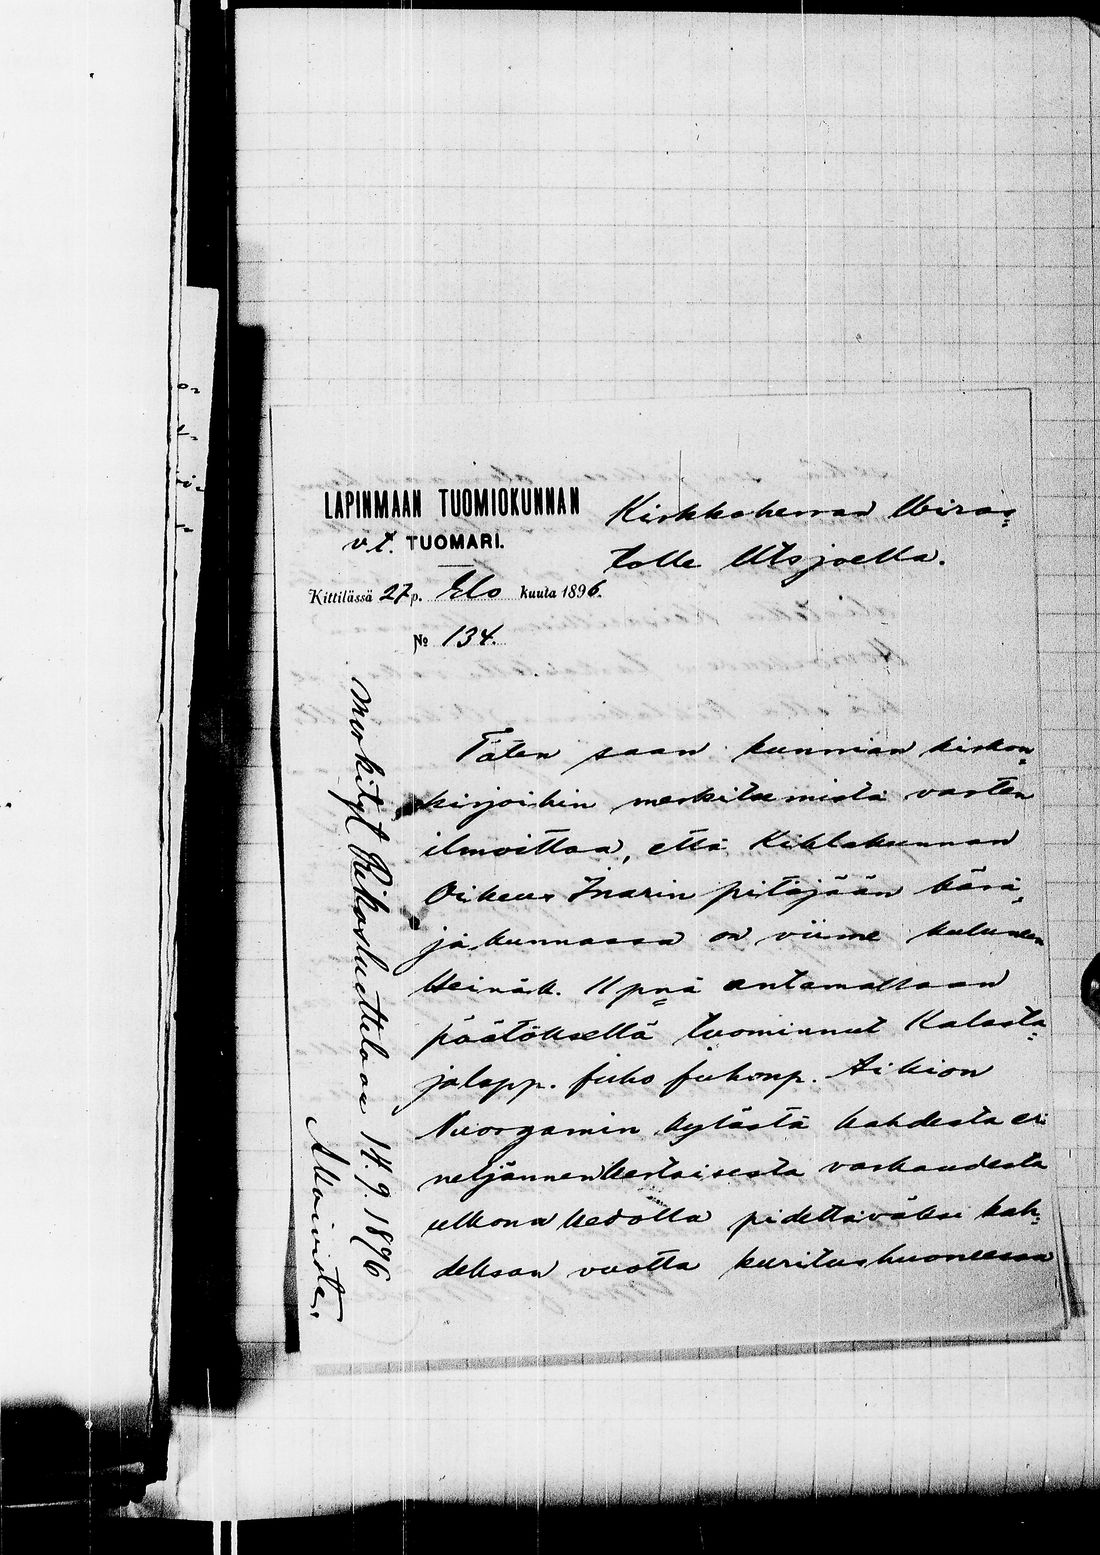 LAPINMAAN TUOMIOKUNNAN
v.t. TUOMARI.
Kittilässä 27 p. Elo kuuta 1896.
No 134.
Kirkkoherran Viras-
tolle Utsjoella.
Täten saan kunnian kirkon-
kirjoihin merkitsemistä varten
ilmoittaa, että Kihlakunnan
Oikeus Inarin pitäjään kärä-
jäkunnassa on viime kuluneen
Heinäk. 11 pnä antamallaan
päätöksellä tuominnut Kalasta-
jalapp. Juho Juhonp. Aikion
Nuorgamin kylästä kahdesta eri
neljännenkertaisesta varkaudesta
ulkona kedolla pidettäväksi kah-
deksan vuotta kuritushuoneessa
Merkityt Rikosluetteloon 14.9.1896